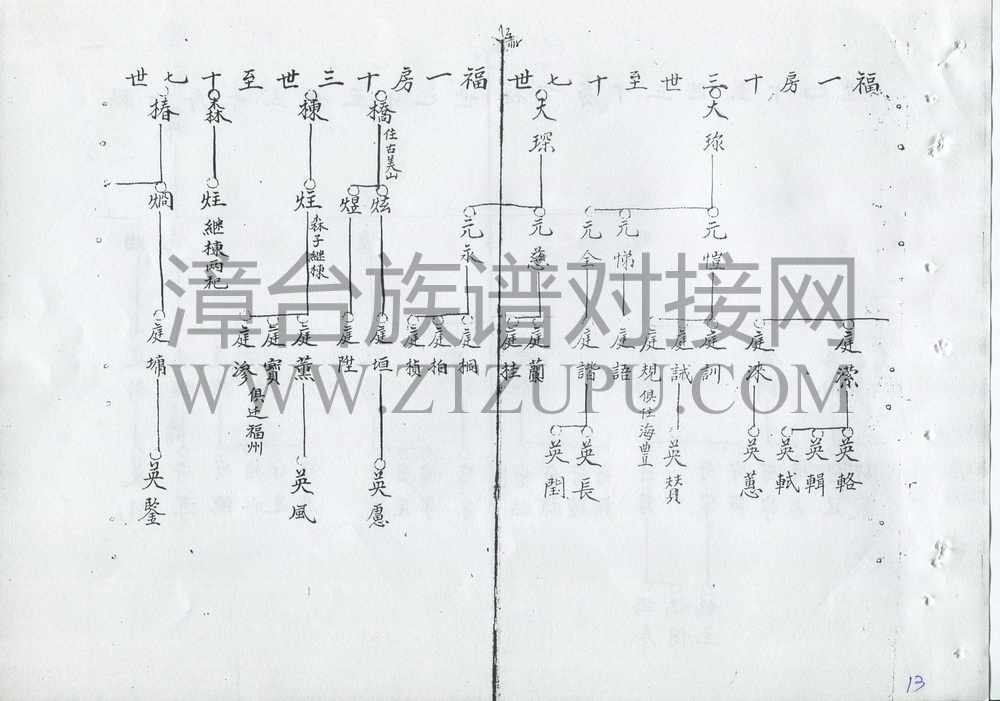 福一房十三世至十七世
大琛
元愷
元悌
元全
元慈
元永
庭訓
庭誠
庭規
俱住海豊
庭語
庭諧
庭蘭
庭桂
庭桐
庭柏
庭楨
英輅
英輯
英軾
英蕙
英贊
英長
英閏
福一房十三世至十七世
橋
住古美山
棟
森
椿
炫
煜
炷
森子継棟
炷
継棟両祀
燗
庭垣
庭陞
庭薰
庭寶
庭滲
俱迁福州
庭墉
英慮
英風
英鑒
漳台族谱对接网
WWW.ZTZUPU.COM
13